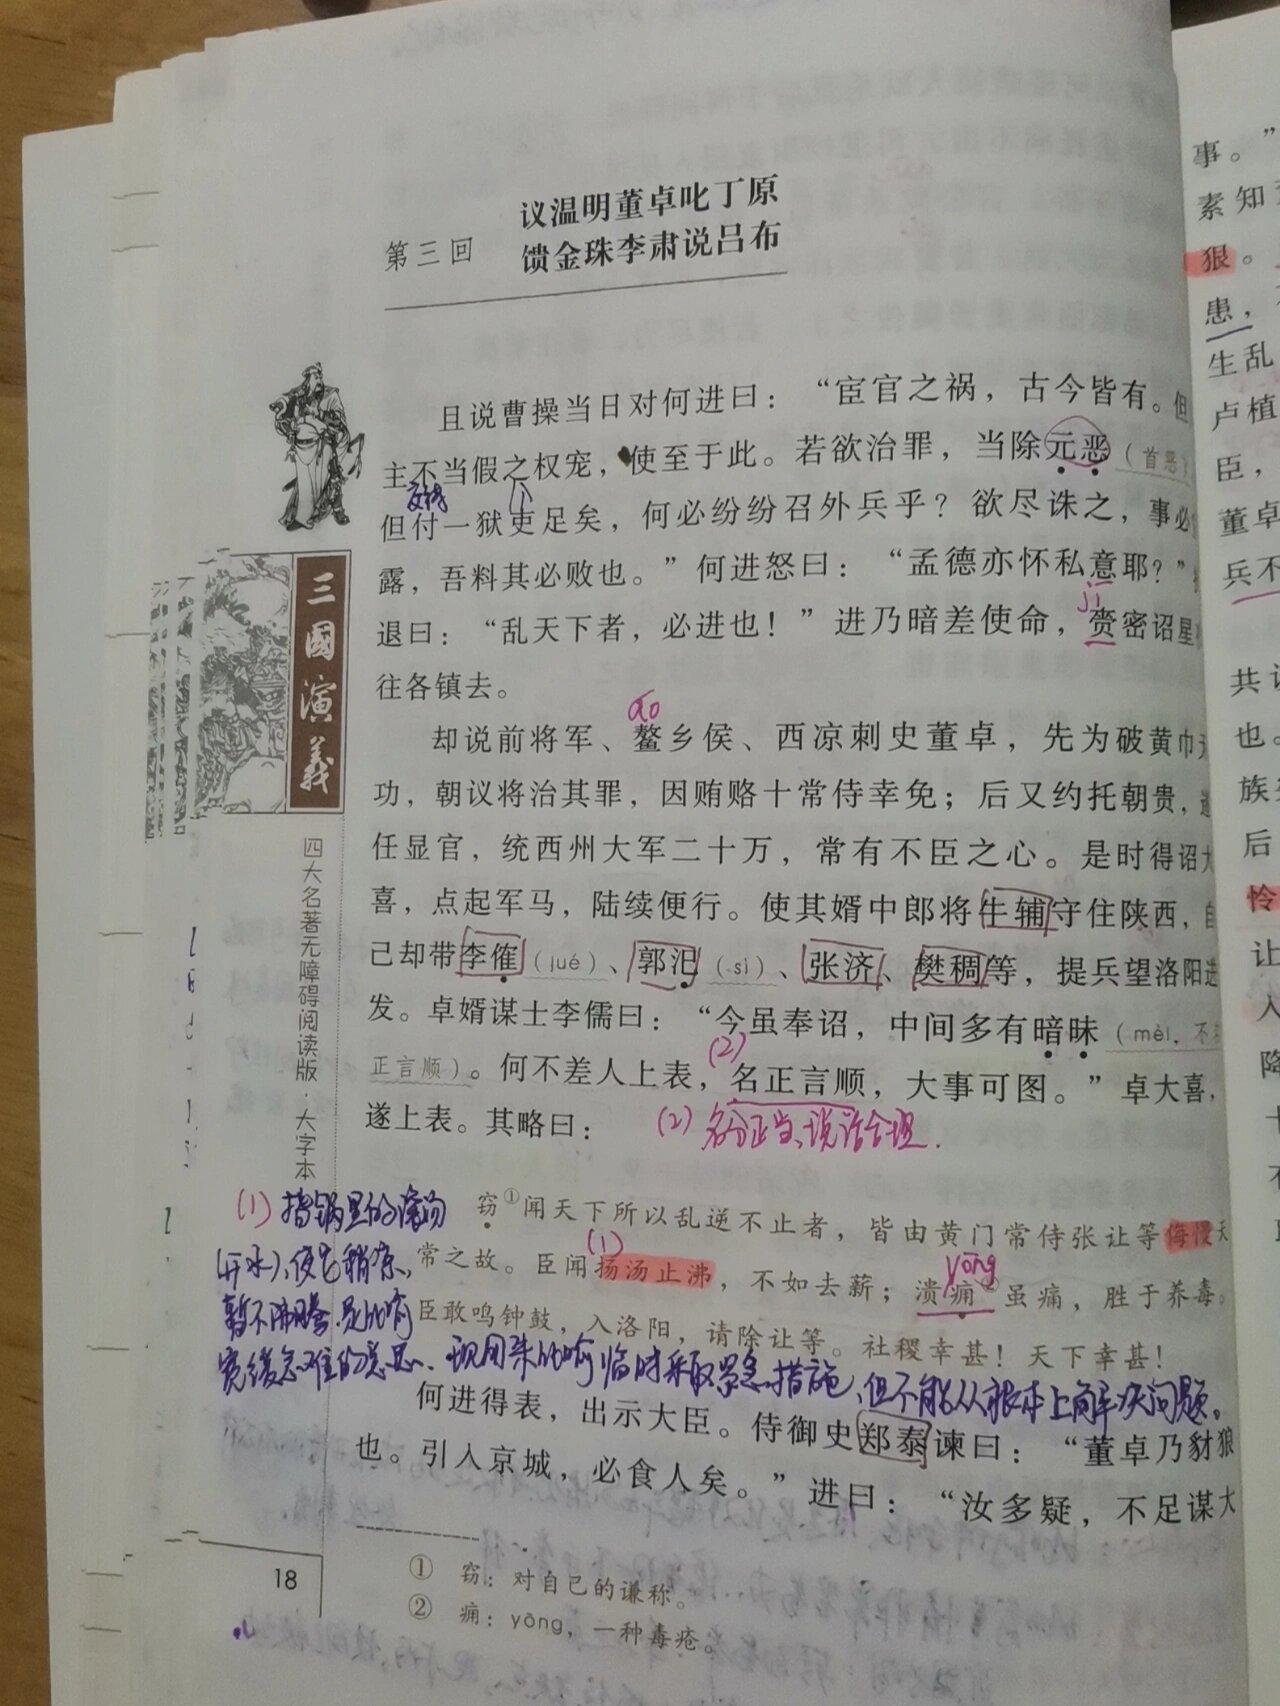 第三回
议温明董卓叱丁原
馈金珠李肃说吕布
且说曹操当日对何进曰：“宦官之祸，古今皆有。但
主不当假之权宠，使至于此。若欲治罪，当除元恶（首恶）
交待
但付一狱吏足矣，何必纷纷召外兵乎？欲尽诛之，事必
露，吾料其必败也。”何进怒曰：“孟德亦怀私意耶？”
jī
退曰：“乱天下者，必进也！”进乃暗差使命，赍密诏星
往各镇去。
áo
却说前将军、鳌乡侯、西凉刺史董卓，先为破黄巾无
功，朝议将治其罪，因贿赂十常侍幸免；后又约托朝贵，遂
任显官，统西州大军二十万，常有不臣之心。是时得诏大
喜，点起军马，陆续便行。使其婿中郎将牛辅守住陕西，自
己却带李傕（jué）、郭汜（sì）、张济、樊稠等，提兵望洛阳进
发。卓婿谋士李儒曰：“今虽奉诏，中间多有暗昧（mèi，不
(2)
正言顺）。何不差人上表，名正言顺，大事可图。”卓大喜，
遂上表。其略曰：
(2)名分正当、说话合理.
窃①闻天下所以乱逆不止者，皆由黄门常侍张让等侮慢天
(1) yōng
常之故。臣闻扬汤止沸，不如去薪；溃痈②虽痛，胜于养毒。
臣敢鸣钟鼓，入洛阳，请除让等。社稷幸甚！天下幸甚！
(1)指锅里的滚汤
(开水)，使它稍凉，
暂不沸腾.是比喻
宽缓急难的意思、现用来比喻临时采取紧急措施，但不能从根本上解决问题。
何进得表，出示大臣。侍御史郑泰谏曰：“董卓乃豺狼
也。引入京城，必食人矣。”进曰：“汝多疑，不足谋大
① 窃：对自己的谦称。
② 痈：yōng，一种毒疮。
18
三國演義
四大名著无障碍阅读版·大字本
事。”
素知
狠。
患，
生乱
卢植
臣，
董卓
兵不
共
也。
族
后
怜
让
人
降